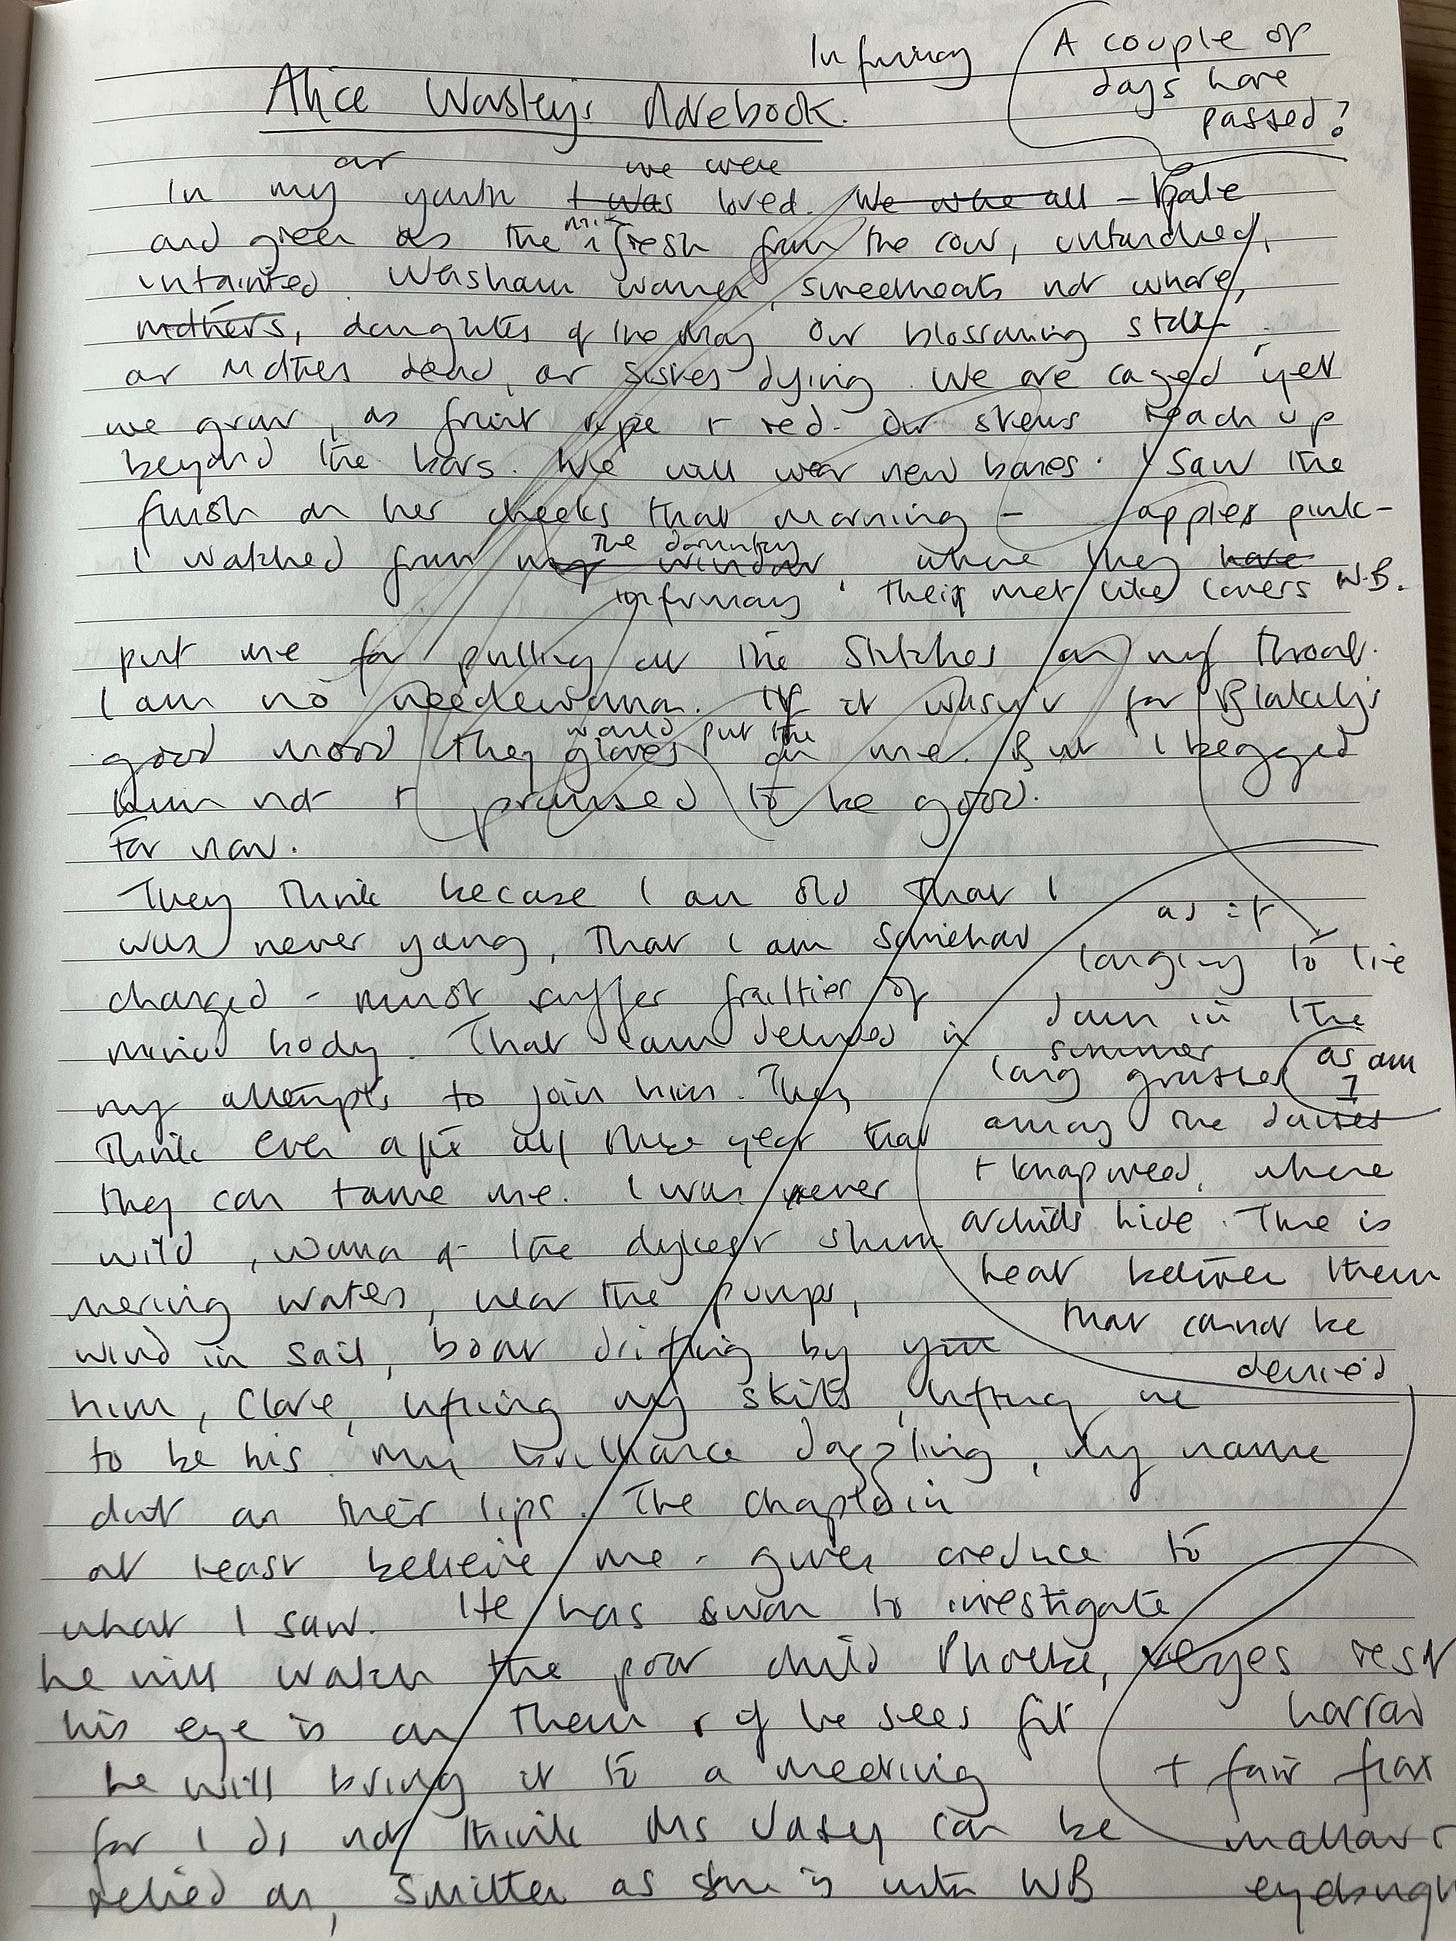 Infirmary
A couple of
days have
passed?
Alice Wasleys Notebook.
our we were
In my youth I was loved. We were all – Pale
and green as the milk fresh from the cow, untouched,
untainted. Washam women, sweethearts not whore,
mothers, daughters of the May Our blossoming stolen.
our Mothers dead, our sisters dying. We are caged yet
we grow, as fruit ripe + red. Our stems reach up
beyond the bars. We will wear new bones. I saw the
flush on her cheeks that morning – apples pink –
I watched from my window where they have
the
infirmary. They met like lovers W.B.
put me for pulling out the stitches on my throat.
I am no needlewoman. If it wasn't for Blakely's
good mood they would put the gloves on me. But I begged
him not + promised to be good.
For now.
They think because I am old that I
was never young, that I am somehow
changed – must suffer frailties of
mind body. That I am deluded in
my attempts to join him. They
think even after all these years that
they can tame me. I was never
wild, woman of the dykes shim
mering water, near the pumps,
wind in sail, boat drifting by you
him, Clare, lifting my skirts, lifting me
to be his. My brilliance dazzling, my name
out on their lips. The Chaplain
at least believe me. gives credence to
what I saw. He has sworn to investigate
he will watch the poor child Phoebe,
his eye is on them + if he sees fit
he will bring it to a meeting
for I do not think Ms Vasey can be
relied on, smitten as she is with WB
as it
longing to lie
down in the
summer
long grasses as am
I
among the daisies
+ knapweed, where
orchids hide. There is
heat between them
that cannot be
denied
eyes rest
+ fair flax
mallow +